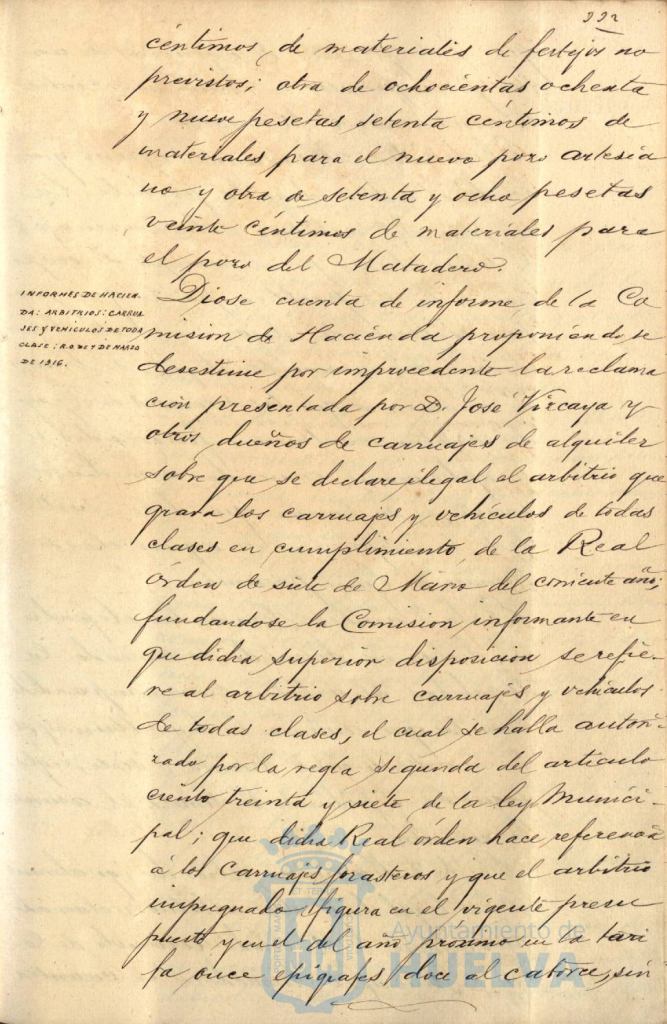 332
céntimos, de materiales de festejos no
previstos; otra de ochocientas ochenta
y nueve pesetas setenta céntimos de
materiales para el nuevo pozo artesia
no y otra de setenta y ocho pesetas
veinte céntimos de materiales para
el pozo del Matadero.
INFORMES DE HACIEN-
DA: ARBITRIOS: CARRUA
JES Y VEHICULOS DE TODA
CLASE: R.O. DE 7 DE MARZO
DE 1916.
Diose cuenta de informe de la Co
mision de Hacienda proponiendo se
desestime por improcedente la reclama
ción presentada por D. José Vizcaya y
otros dueños de carruajes de alquiler
sobre que se declare ilegal el arbitrio que
grava los carruajes y vehículos de todas
clases en cumplimiento de la Real
órden de siete de Marzo del corriente año;
fundandose la Comision informante en
que dicha superior disposicion se refie-
re al arbitrio sobre carruajes y vehículos
de todas clases, el cual se halla autori-
zado por la regla segunda del artículo
ciento treinta y siete de la ley Munici-
pal; que dicha Real órden hace referencia
á los carruajes forasteros y que el arbitrio
impugnado figura en el vigente presu
puesto y en el del año proximo en la tari
fa once epígrafes doce al catorce, sin
Ayuntamiento de
HUELVA